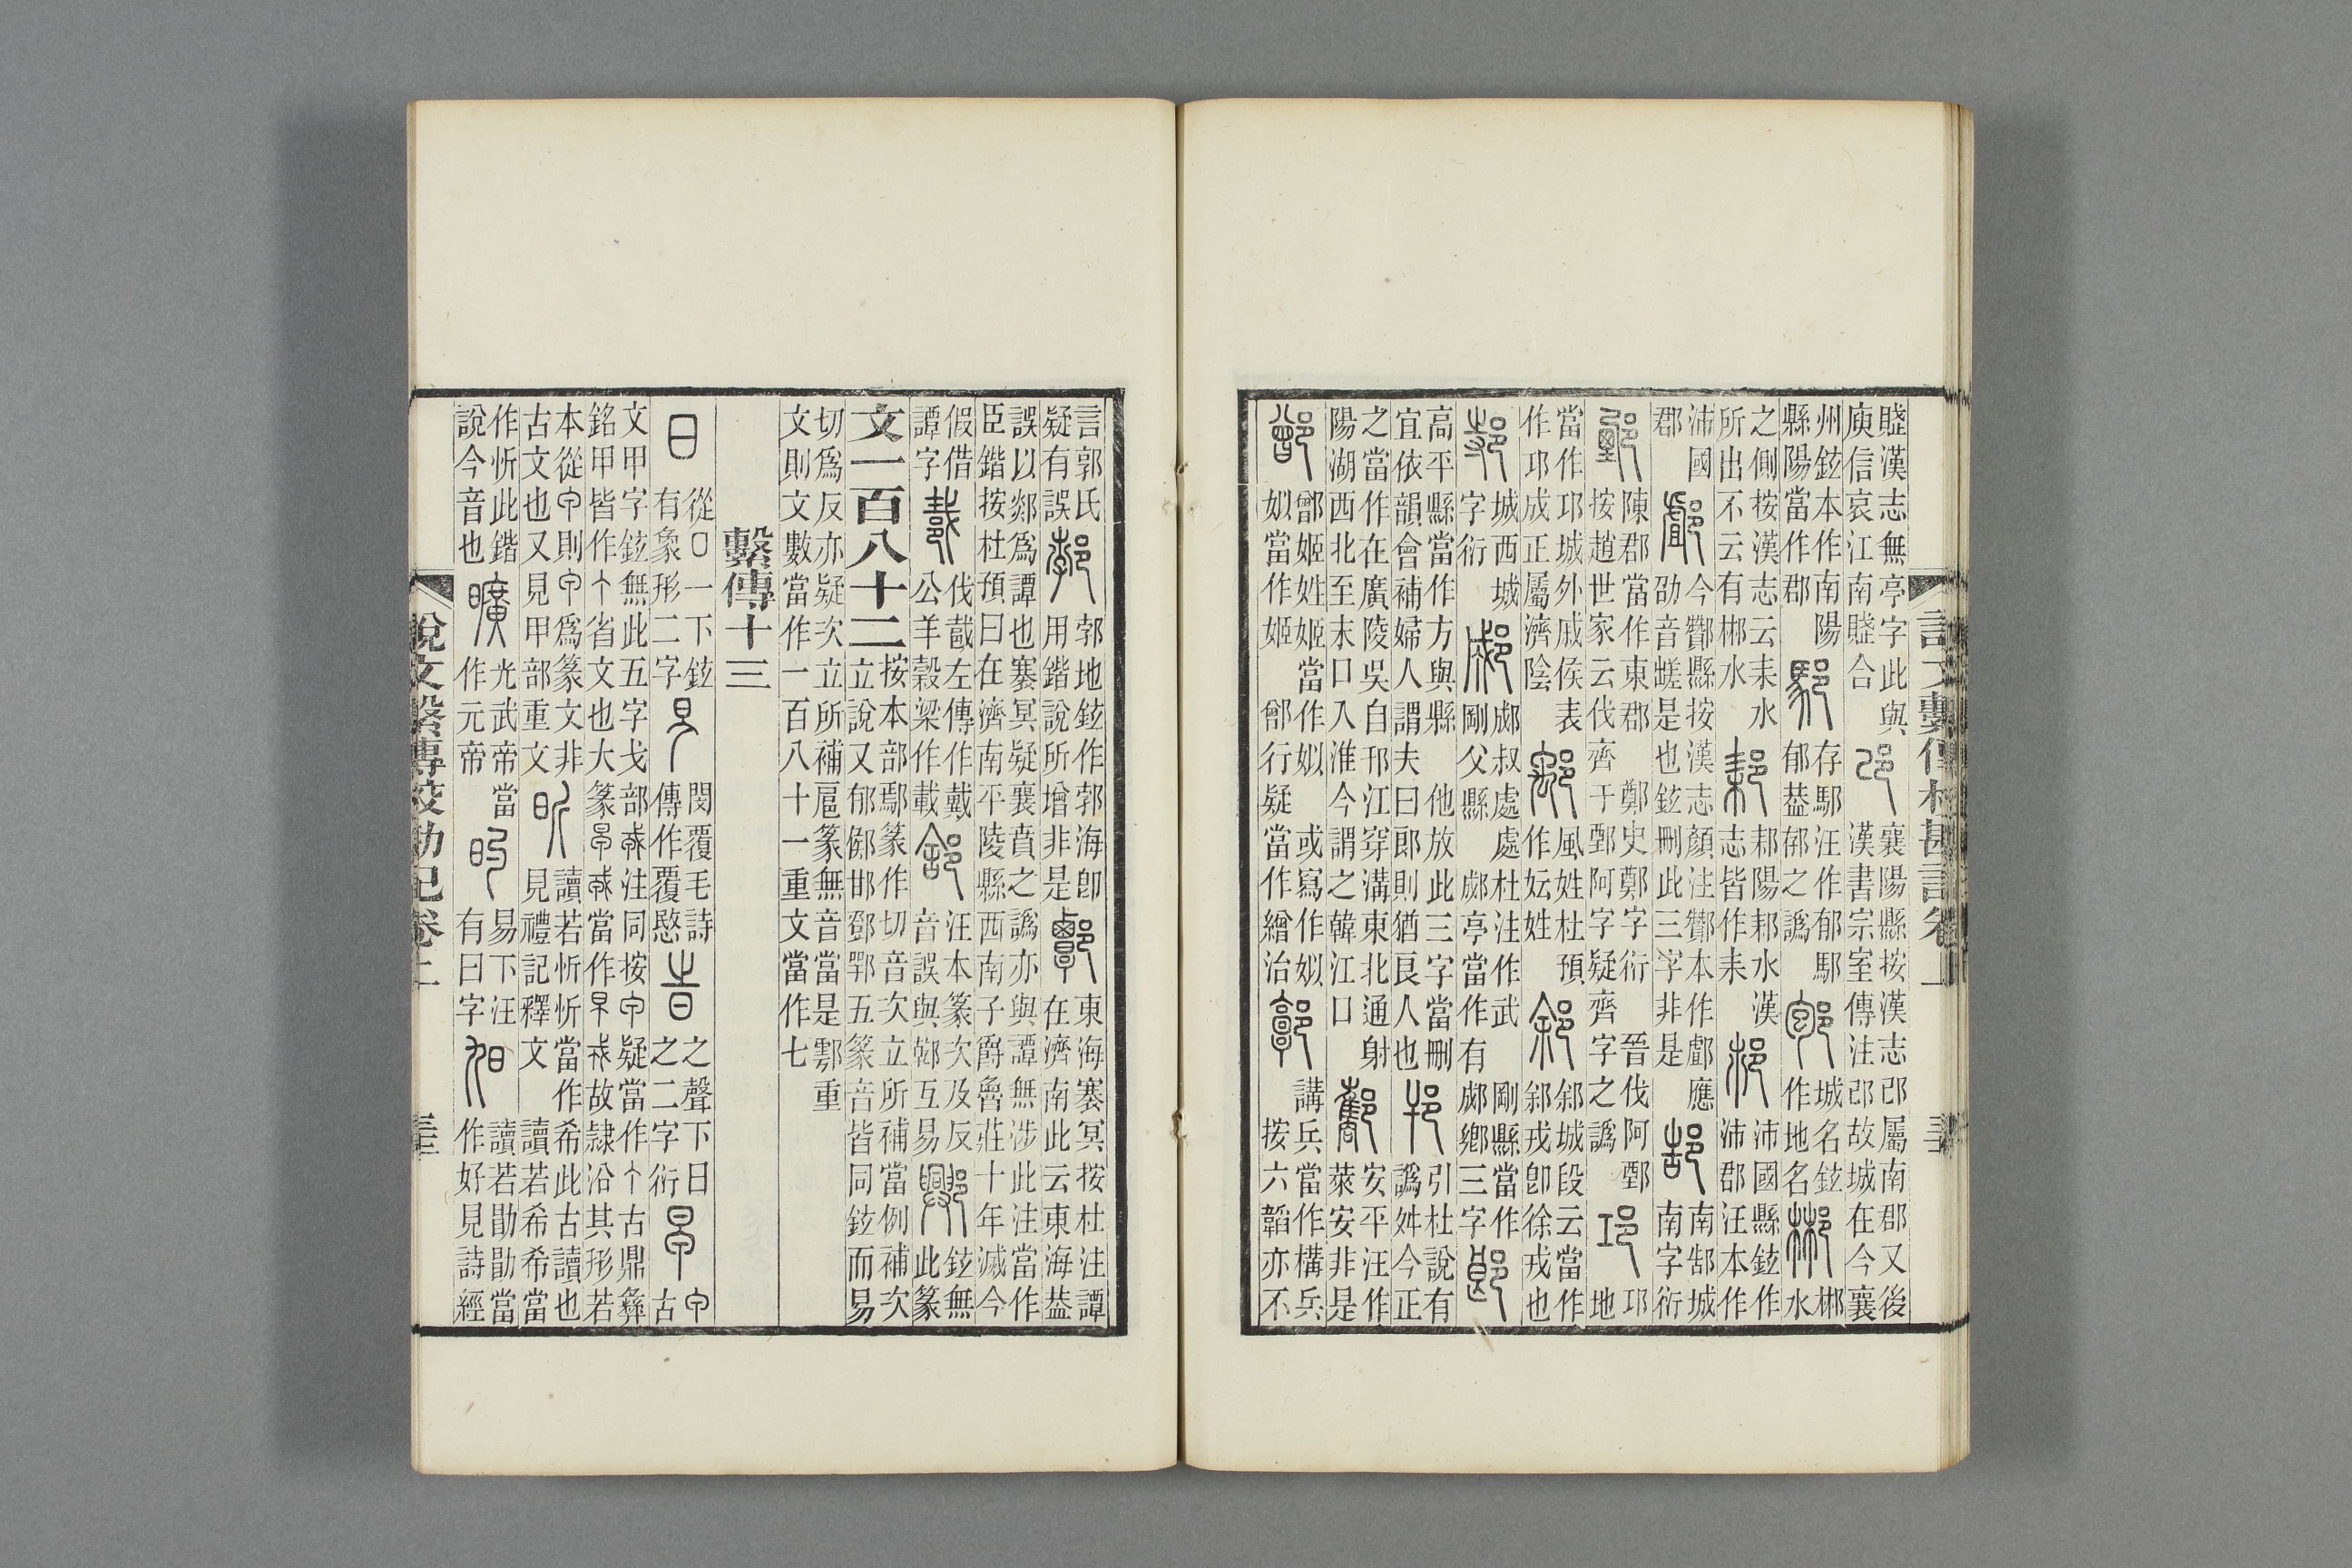 賹漢志無亭字此與庾信哀江南賹合邔襄陽縣按漢志邔屬南郡又後漢書宗室傳注邔故城在今襄
州鉉本作南陽縣陽當作郡䣖存䣖汪作郁䣖郁葢之譌城名鉉作地名郴郴水
之側按漢志云耒水所出不云有郴水陽水漢志皆作耒沛國縣鉉作沛郡汪本作
沛國郡䣜今酇縣按漢志顏注酇本作䣜應劭音嵯是也鉉刪此三字非是郜南郜城南字衍
鄄陳郡當作東郡 鄭史鄭字衍 晉伐阿鄄按趙世家云伐齊于鄄阿字疑齊字之譌邛邛地
當作邛城外戚侯表作邛成正屬濟陰風姓杜預作妘姓䣄䣄城段云當作䣄戎卽徐戎也
城西城字衍郕郕叔處處杜注作武剛父縣 郕亭當作有 剛縣當作郕鄉三字郎
高平縣當作方與縣 他放此三字當刪宜依韻會補婦人謂夫曰郎則猶良人也引杜說有譌姅今正
之當作在廣陵吳自邗江穿溝東北通射陽湖西北至末口入淮今謂之韓江口酄安平汪作萊安非是
鄫鄫姬姓姬當作姒 或寫作姒姒當作姬 鄫行疑當作繒治鄣講兵當作構兵按六韜亦不
說文繫傳校勘記卷上
言郭氏疑有誤郭地鉉作郭海卽用鍇說所增非是東海褰冥按杜注譚在濟南此云東海葢
誤以郯爲譚也褰冥疑襄賁之譌亦與譚無涉此注當作臣鍇按杜預曰在濟南平陵縣西南子爵魯莊十年滅今
假借譚字伐戴左傳作戴公羊穀梁作載汪本篆次及反音誤與鄒互易鉉無此篆
文一百八十二按本部鄢篆作切音次立所補當例補次立說又郁鄇邯郅鄂五篆音皆同鉉而易
切爲反亦疑次立所補扈篆無音當是鄠重文則文數當作一百八十一重文當作七
繫傳十三
日從口一下鉉有象形二字閔覆毛詩傳作覆愍之聲下日之二字衍古
文甲字鉉無此五字戈部注同按疑當作古鼎彝銘甲皆作省文也大篆當作故隸沿其形若
本從則爲篆文非古文也又見甲部重文昕讀若忻忻當作希此古讀也見禮記釋文 讀若希希當
作忻此鍇說今音也曠光武帝當作元帝易下汪有曰字讀若勖勖當作好見詩經
說文繫傳校勘記卷上